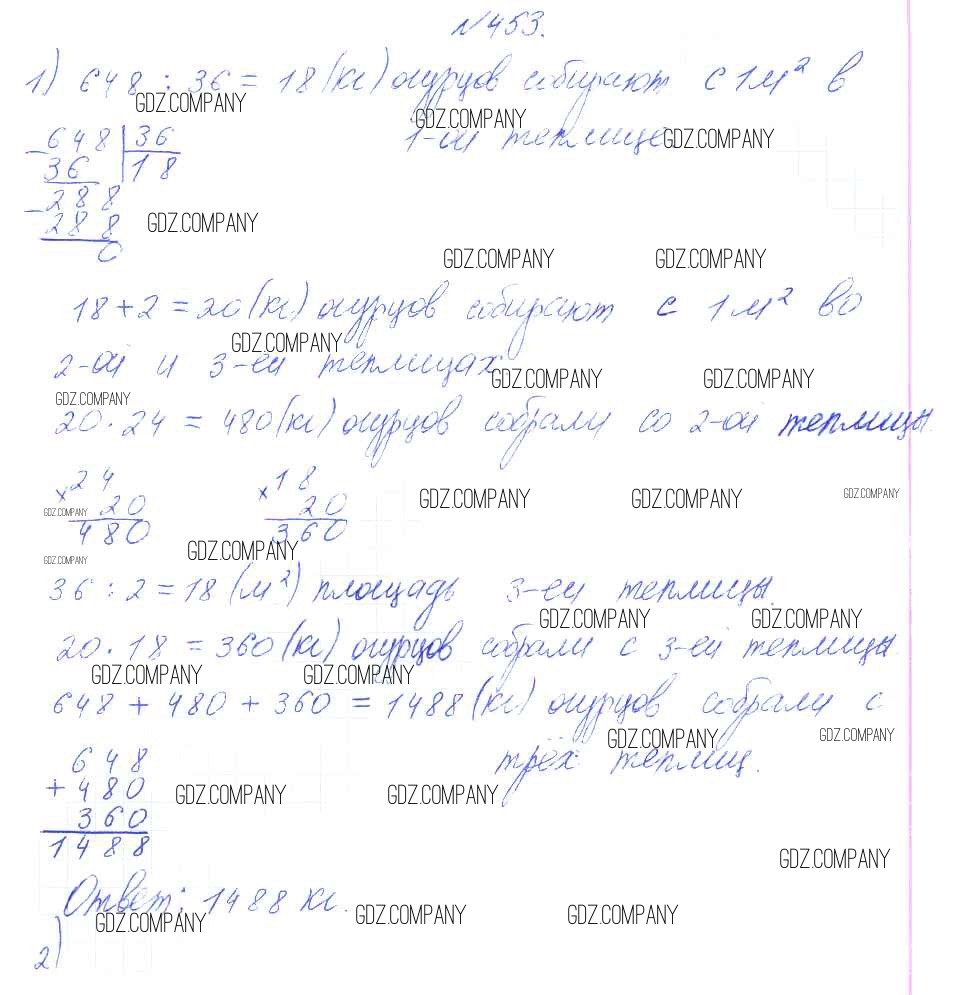 №453.
1) 648 : 36 = 18 (кг) огурцов собирают с 1м² в
GDZ.COMPANY
GDZ.COMPANY
1-ой теплице
GDZ.COMPANY
- 648 | 36
36 | 18
- 288
288
0
GDZ.COMPANY
GDZ.COMPANY GDZ.COMPANY
18 + 2 = 20 (кг) огурцов собирают с 1м² во
GDZ.COMPANY
2-ой и 3-ей теплицах
GDZ.COMPANY GDZ.COMPANY
GDZ.COMPANY
20 · 24 = 480 (кг) огурцов собрали со 2-ой теплицы.
× 24 × 18
20 20
480 360
GDZ.COMPANY GDZ.COMPANY GDZ.COMPANY
GDZ.COMPANY
GDZ.COMPANY
GDZ.COMPANY
36 : 2 = 18 (м²) площадь 3-ей теплицы.
GDZ.COMPANY GDZ.COMPANY
20 · 18 = 360 (кг) огурцов собрали с 3-ей теплицы.
GDZ.COMPANY GDZ.COMPANY
648 + 480 + 360 = 1488 (кг) огурцов собрали с
GDZ.COMPANY GDZ.COMPANY
трёх теплиц.
648
+ 480
360
1488
GDZ.COMPANY GDZ.COMPANY
GDZ.COMPANY
Ответ: 1488 кг.
GDZ.COMPANY GDZ.COMPANY GDZ.COMPANY
2)